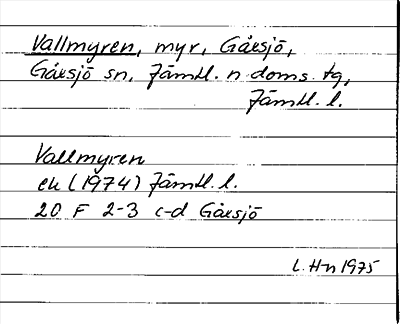 Vallmyren, myr, Gåxsjö,
Gåxsjö sn, Jämtl. n. doms. tg,
Jämtl. l.
Vallmyren
ek (1974) Jämtl. l.
20 F 2-3 c-d Gåxsjö
L. Hn 1975